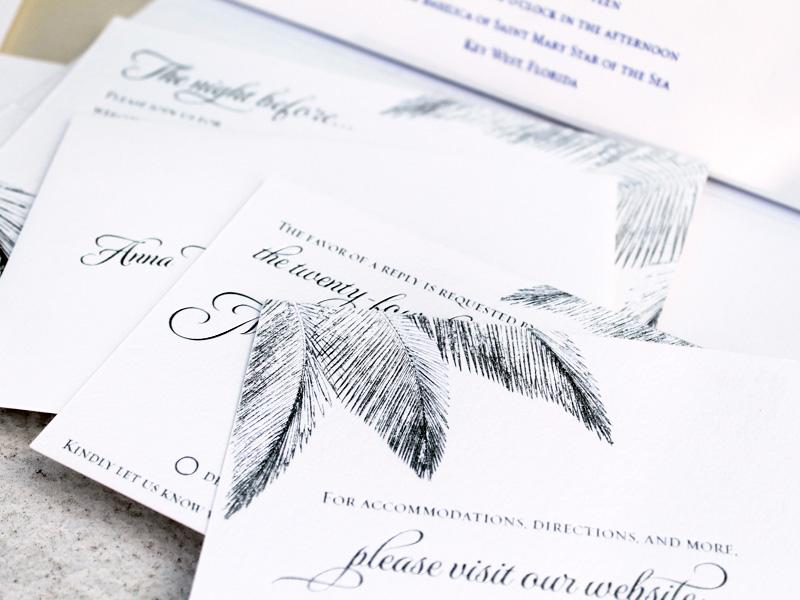 O'CLOCK IN THE AFTERNOON
BASILICA OF SAINT MARY STAR OF THE SEA
KEY WEST, FLORIDA
The night before...
PLEASE JOIN US FOR
Anna
THE FAVOR OF A REPLY IS REQUESTED
the twenty-fou
KINDLY LET US KNOW
FOR ACCOMMODATIONS, DIRECTIONS, AND MORE,
please visit our website